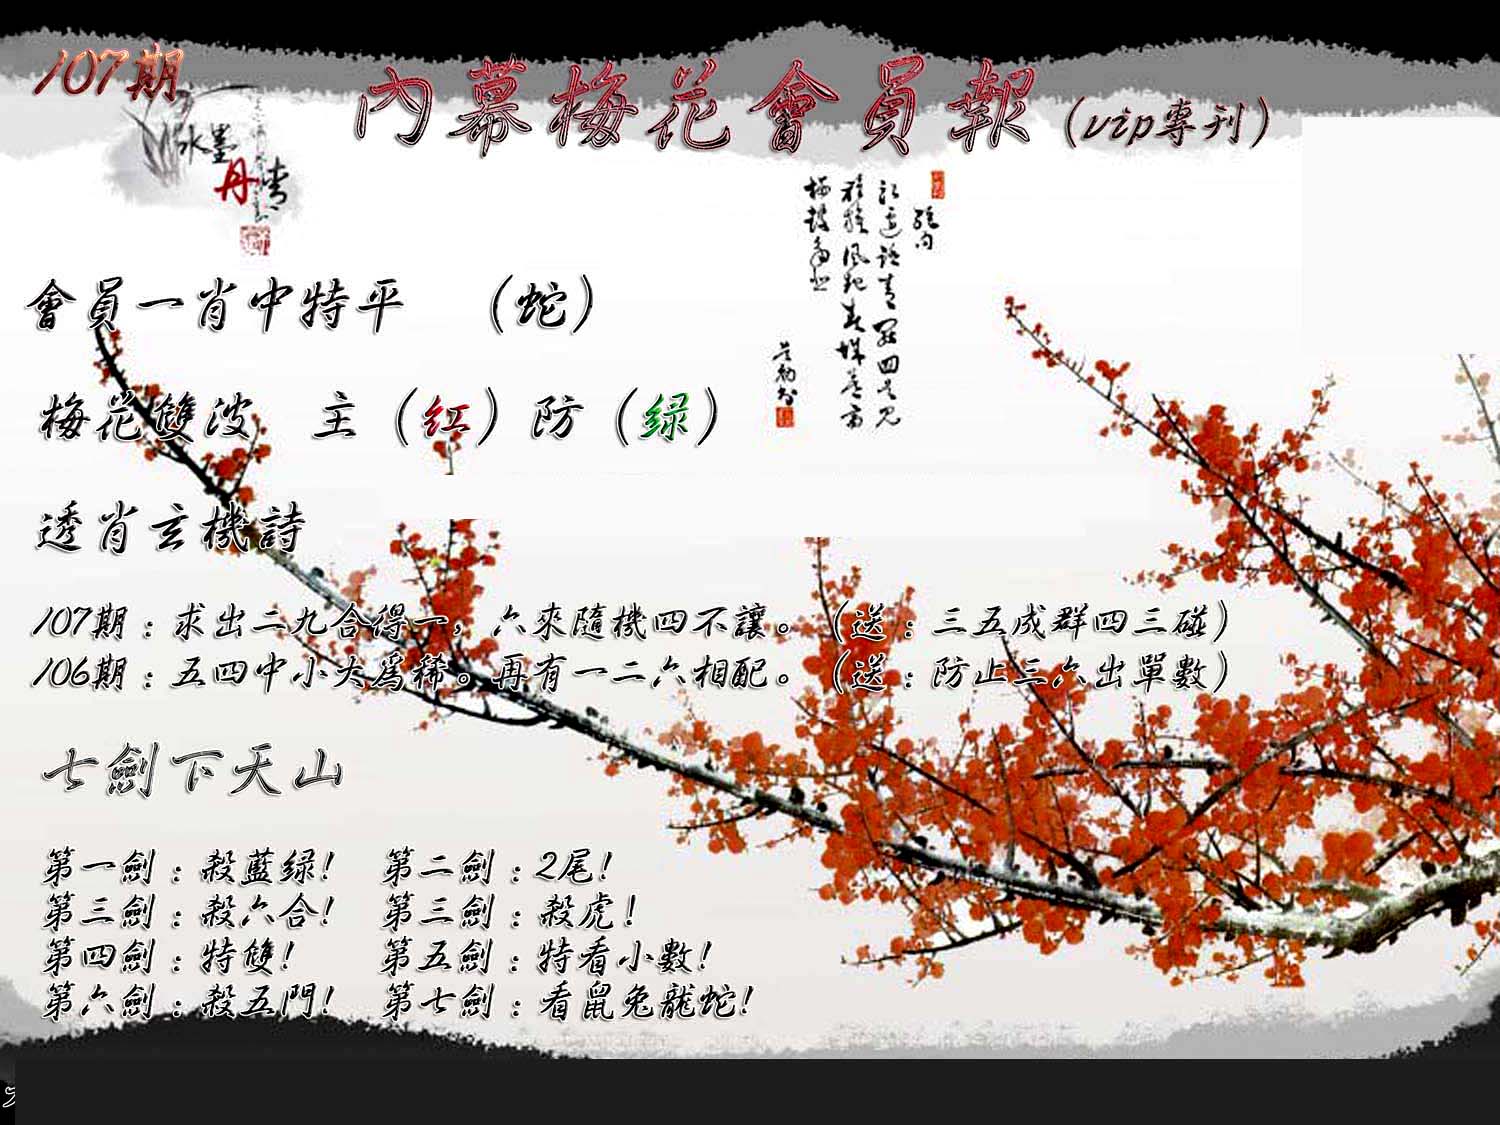 107期
內幕梅花會員報(vip專刊)
水墨
丹青
會員一肖中特平 (蛇)
梅花雙波 主(红)防(绿)
透肖玄機詩
107期:求出二九合得一,六來隨機四不讓。(送:三五成群四三碰)
106期:五四中小大爲稀。再有一二六相配。(送:防止三六出單數)
七劍下天山
第一劍:殺藍绿! 第二劍:2尾!
第三劍:殺六合! 第三劍:殺虎!
第四劍:特雙! 第五劍:特看小數!
第六劍:殺五門! 第七劍:看鼠兔龍蛇!